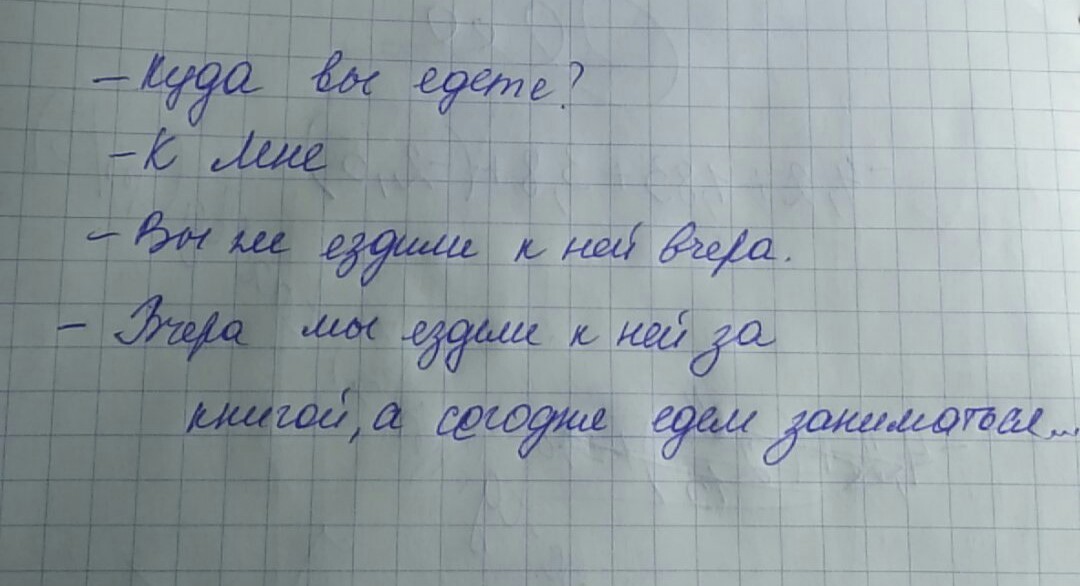 — Куда вы едете?
— К Мне
— Вы же ездили к ней вчера.
— Вчера мы ездили к ней за
книгой, а согодня едем заниматься...